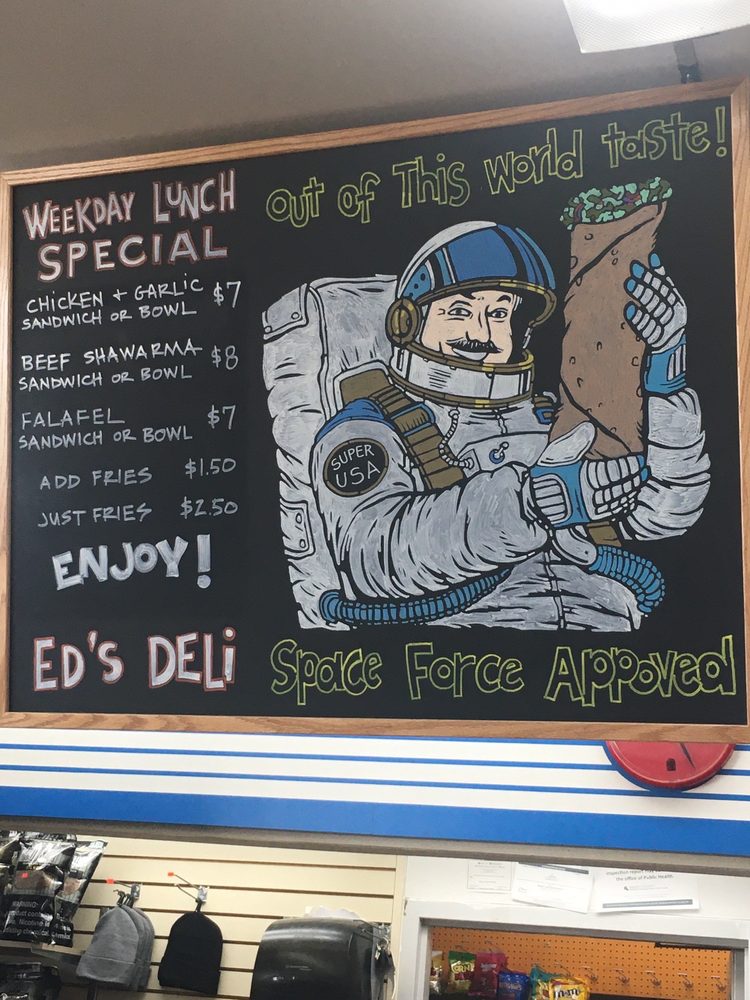 WEEKDAY LUNCH
SPECIAL
CHICKEN + GARLIC $7
SANDWICH OR BOWL
BEEF SHAWARMA $8
SANDWICH OR BOWL
FALAFEL $7
SANDWICH OR BOWL
ADD FRIES $1.50
JUST FRIES $2.50
ENJOY!
ED'S DELi
Out of This World taste!
SUPER
USA
Space Force Appoved
WARNING:
the office of Public Health